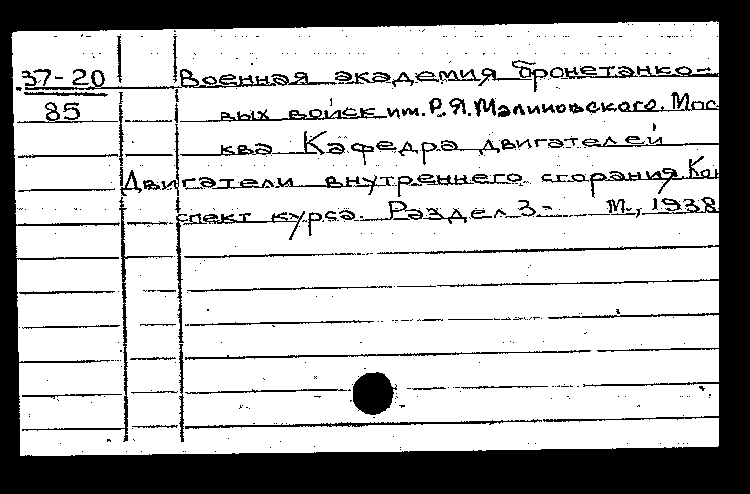 37-20 Военная академия бронетанко-
85 вых войск им. Р.Я. Малиновского. Мос
ква Кафедра двигателей
Двигатели внутреннего сгорания. Кон
спект курса. Раздел 3- М., 1938